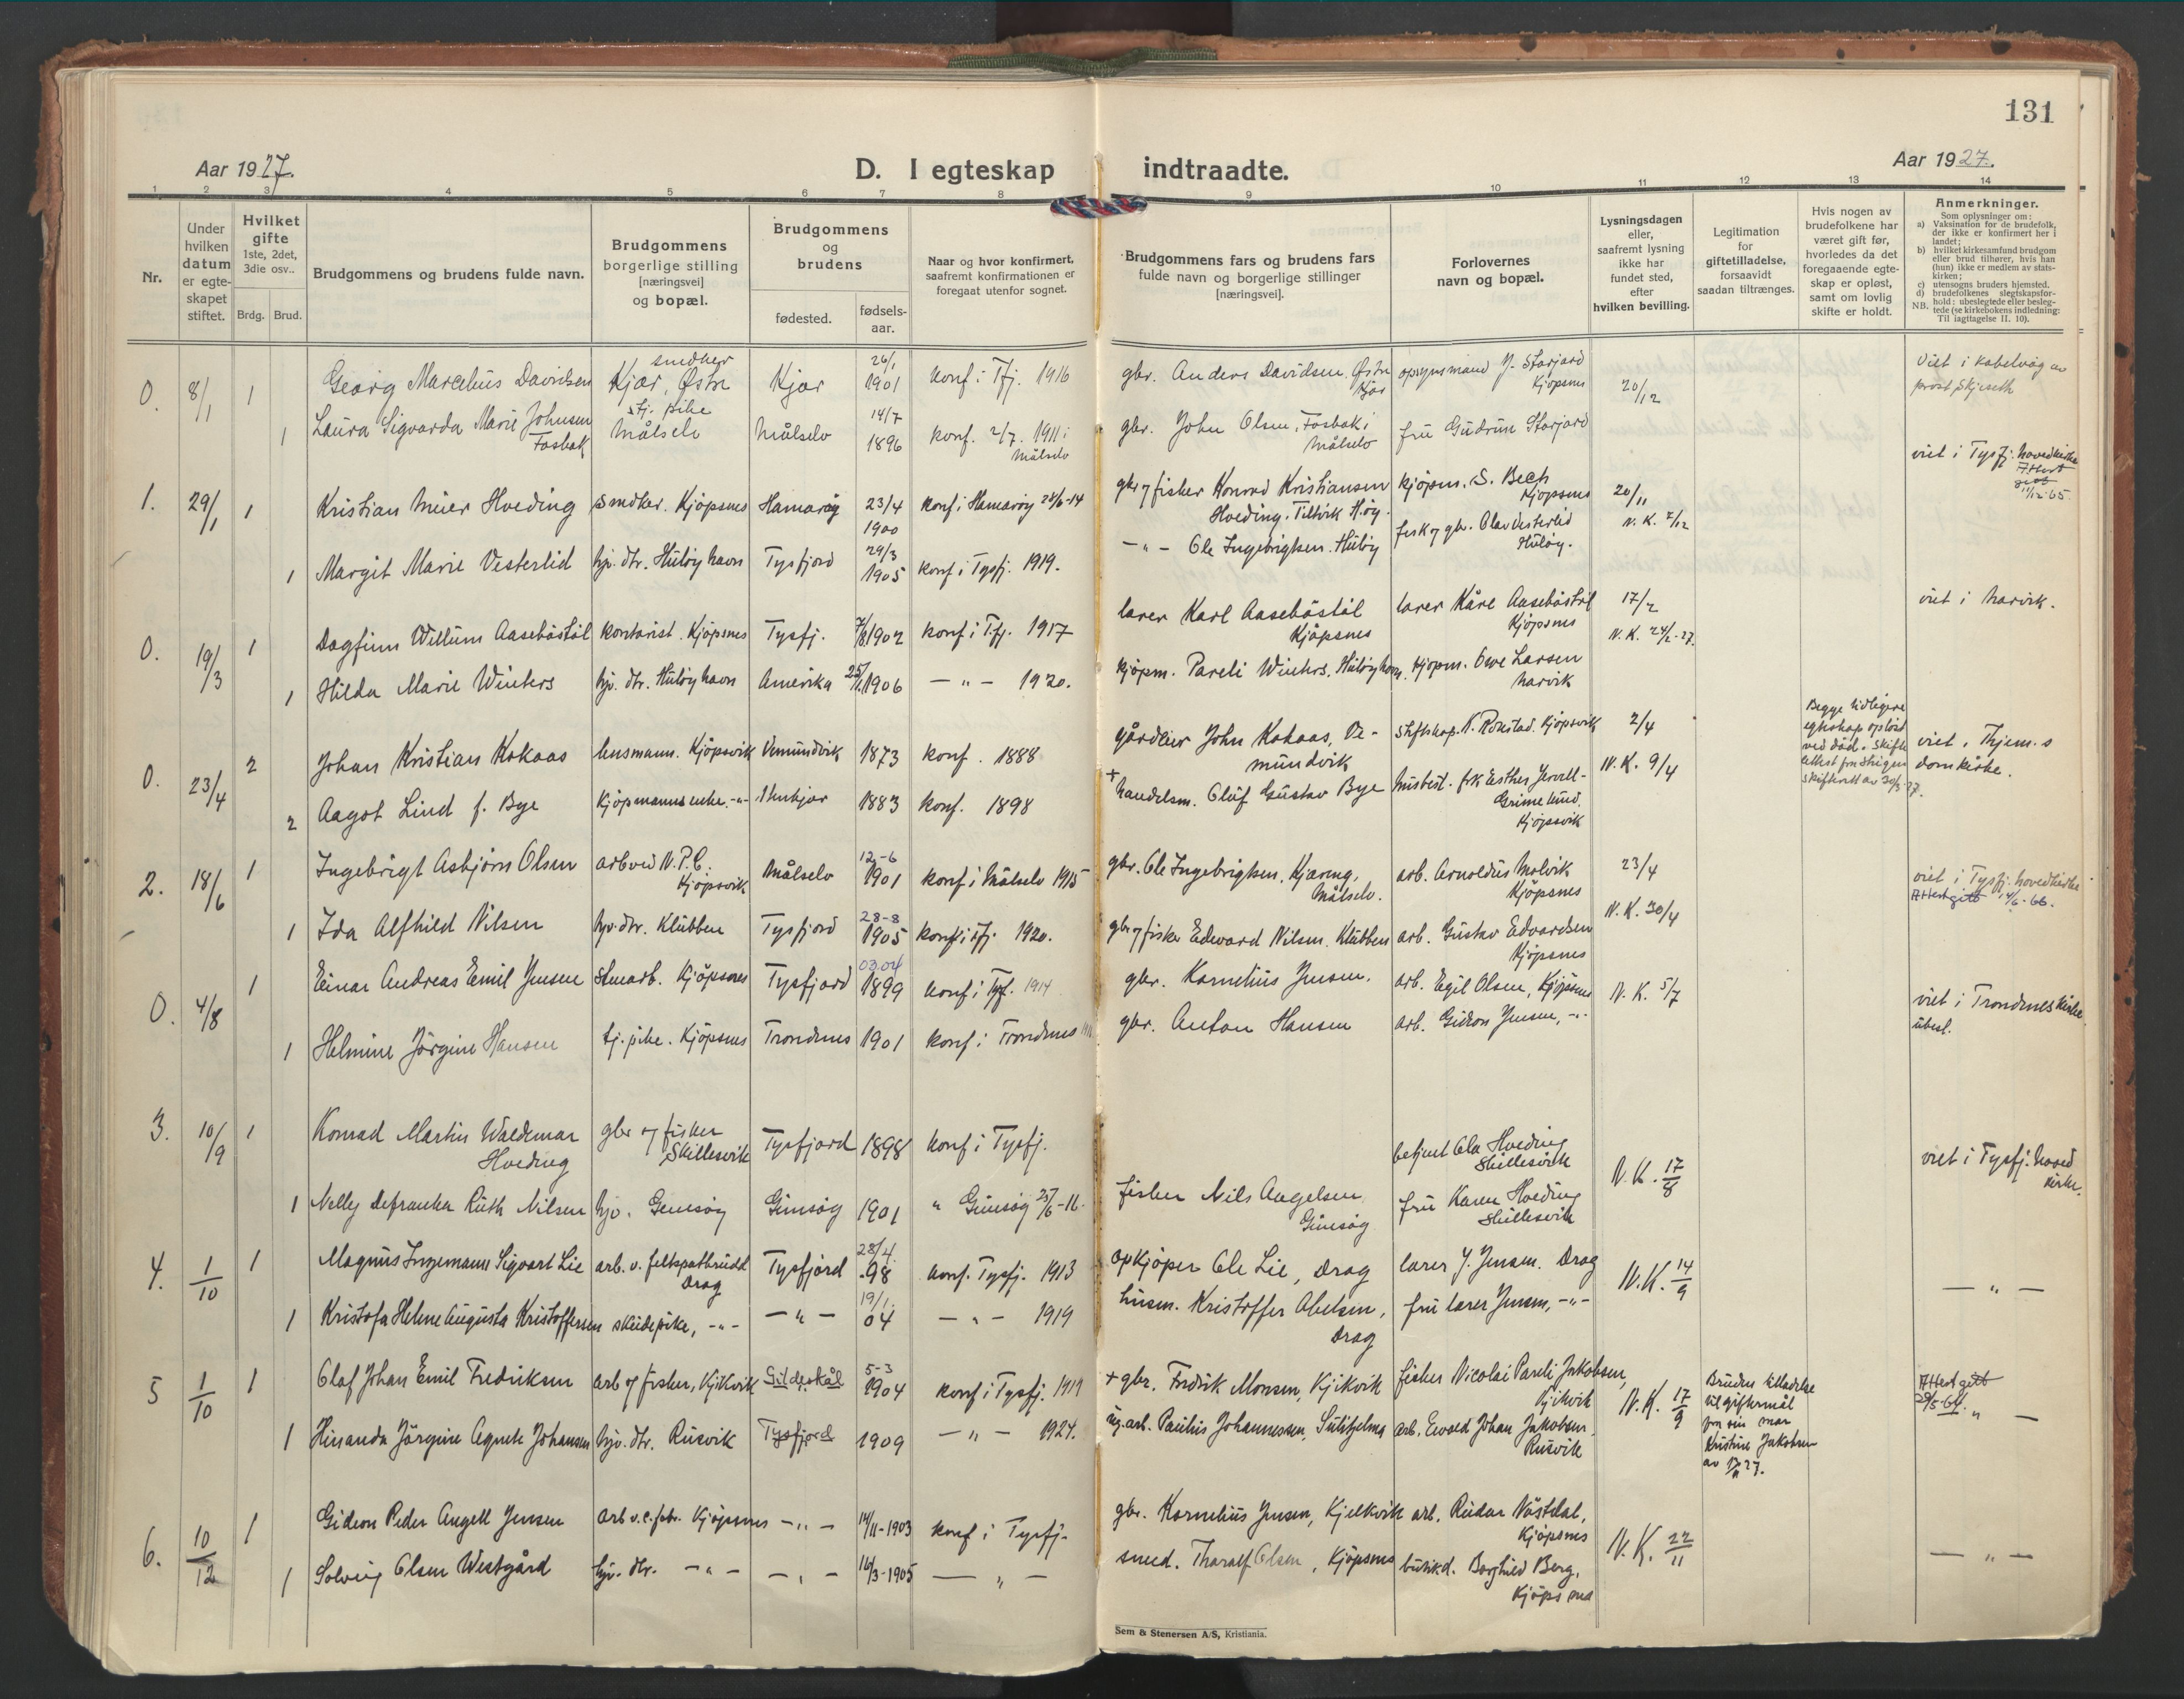 131
Aar 1927.
D. I egteskap indtraadte.
Aar 1927.
1 2 3 4 5 6 7 8 9 10 11 12 13 14
Nr.
Under hvilken datum er egteskapet stiftet.
Hvilket gifte 1ste, 2det, 3die osv..
Brdg. Brud.
Brudgommens og brudens fulde navn.
Brudgommens borgerlige stilling [næringsvei] og bopæl.
Brudgommens og brudens
fødested.
fødselsaar.
Naar og hvor konfirmert, saafremt konfirmationen er foregaat utenfor sognet.
Brudgommens fars og brudens fars fulde navn og borgerlige stillinger [næringsvei].
Forlovernes navn og bopæl.
Lysningsdagen eller, saafremt lysning ikke har fundet sted, efter hvilken bevilling.
Legitimation for giftetilladelse, forsaavidt saadan tiltrænges.
Hvis nogen av brudefolkene har været gift før, hvorledes da det foregaaende egteskap er opløst, samt om lovlig skifte er holdt.
Anmerkninger.
Som oplysninger om:
a) Vaksination for de brudefolk, der ikke er konfirmert her i landet;
b) hvilket kirkesamfund brudgom eller brud tilhører, hvis han (hun) ikke er medlem av statskirken;
c) utensogns bruders hjemsted.
d) brudefolkenes slegtskapsforhold: ubeslegtede eller beslegtede (se kirkebokens indledning: Til iagttagelse II. 10).
NB.
0. 8/1 1 Georg Marcelius Davidsen snedker Kjær, Østre Kjær 26/1 1901 konf. i Tfj. 1916 gbr. Anders Davidsen. Østre Kjær opsynsmand J. Storjord Kjøpsnes 20/12 Viet i Kabelvåg av prost Skjeseth
1 Laura Sigvarda Marie Johnsen Fosbak stj. pike Målselv Målselv 14/7 1896 konf. 2/7. 1911 i Målselv gbr. John Olsen, Fosbak i Målselv fru Gudrun Storjord
1. 29/1 1 Kristian Meier Hveding snedker. Kjøpsnes Hamarøy 23/4 1900 konf. i Hamarøy 28/6-14 gbr og fisker Konrad Kristiansen Hveding, Tiltvik H.øy. kjøpm. S. Bech Kjøpsnes 20/11 N. K. 2/12 viet i Tysfj. hovedkirke Attest gitt 11/12-65
1 Margit Marie Vesterlid hjv. dtr. Huløyhavn Tysfjord 29/3 1905 konf i Tysfj. 1919. -"- Ole Ingebrigtsen. Huløy fisk og gbr. Olav Vesterlid Huløy.
0. 19/3 1 Dagfinn Willum Aasebøstøl kontorist. Kjøpsnes Tysfj. 1902 konf i Tfj. 1917 lærer Karl Aasebøstøl Kjøpsnes lærer Kåre Aasebøstøl Kjøpsnes 17/2 N. K. 24/2-27. viet i Narvik.
1 Hilda Marie Winters hjv. dtr. Huløyhavn Amerika 1906 -"- 1920. kjøpm. Pareli Winters. Huløyhavn. kjøpm. Ove Larsen Narvik
0. 23/4 2 Johan Kristian Kokaas lensmann. Kjøpsvik Vemundvik 1873 konf. 1888 gårdeier John Kokaas, Vemundvik skiftskap. K. Rokstad. Kjøpsvik 2/4 N. K. 9/4 Begge tidligere egteskap opløst ved død. Skifte attest fra Steigen skifterett av 30/3 27. viet i Thjem.s domkirke.
2 Aagot Lind f. Bye kjøpmannsenke. -"- Stenkjær 1883 konf. 1898 + handelsm. Oluf Gustav Bye husbest. frk Esther Jervell-Grimelund, Kjøpsvik
2. 18/6 1 Ingebrigt Asbjørn Olsen arb ved N.P.C. Kjøpsvik Målselv 12-6 1901 konf i Målselv 1915 gbr. Ole Ingebrigtsen, Kjæreng, Målselv. arb. Arnoldus Molvik Kjøpsnes 23/4 N. K. 30/4 viet i Tysfj. hovedkirke Attest gitt 14/6-66.
1 Ida Alfhild Nilsen hjv. dtr. Klubben Tysfjord 28-8 1905 konf i Tfj. 1920. gbr og fisker Edvard Nilsen. Klubben arb. Gustav Edvardsen Kjøpsnes
0. 4/8 1 Einar Andreas Emil Jensen stenarb. Kjøpsnes Tysfjord 03.04 1899 konf i Tysf. 1914 gbr. Kornelius Jensen. arb. Egil Olsen, Kjøpsnes N. K. 5/7 viet i Trondenes kirke. ubesl.
1 Helmine Jørgine Hansen tj. pike. Kjøpsnes Trondenes 1901 konf i Trondenes gbr. Anton Hansen arb. Gideon Jensen, -"-
3. 10/9 1 Konrad Martin Waldemar Hveding gbr og fisker Skillesvik Tysfjord 1898 konf i Tysfj. betjent Ola Hveding Skillesvik N. K. 17/8 viet i Tysfj. hoved kirke.
1 Nelly Defranka Ruth Nilsen hjv. Gimsøy Gimsøy 1901 " Gimsøy 25/6-16. fisker Nils Angelsen Gimsøy fru Karen Hveding Skillesvik
4. 1/10 1 Magnus Ingemann Sigvart Lie arb. v. feltspatbrudd Drag Tysfjord 28/4 -98 konf. Tysfj. 1913 opkjøper Ole Lie, Drag lærer J. Jensen. Drag N. K. 14/9 -"-
1 Kristofa Helene Augusta Kristoffersen skudepike, -"- -"- 19/1. 04 -"- 1919 husm. Kristoffer Abelsen, Drag fru lærer Jensen, -"-
5 1/10 1 Olaf Johan Emil Fredriksen arb og fisker, Kjikvik Gildeskål 5-3 1904 konf i Tysfj. 1919 + gbr. Fredrik Monsen, Kjikvik fisker Nicolai Pareli Jakobsen, Kjikvik N. K. 17/9 Bruden tilladelse til giftermål fra sin mor Kristine Jakobsen av 27. Attest gitt 29/5-64. -"-
1 Hinanda Jørgine Agnete Johansen hjv. dtr. Rusvik Tysfjord 1909 -"- 1924. arb. Paulus Johannessen, Sulitjelma arb. Evald Johan Jakobsen. Rusvik
6. 10/12 1 Gideon Peder Angell Jensen arb v. c. fabr. Kjøpsnes -"- 14/11-1903 konf i Tysfj. gbr. Kornelius Jensen, Kjelkvik arb. Reidar Nøstdal, Kjøpsnes N. K. 22/11 -"-
1 Solveig Olsen Westgård hjv. dtr. -"- -"- 16/3-1905 -"- smed. Tharalf Olsen, Kjøpsnes butikkd. Borghild Berg, Kjøpsnes
Sem & Stenersen A/S, Kristiania.